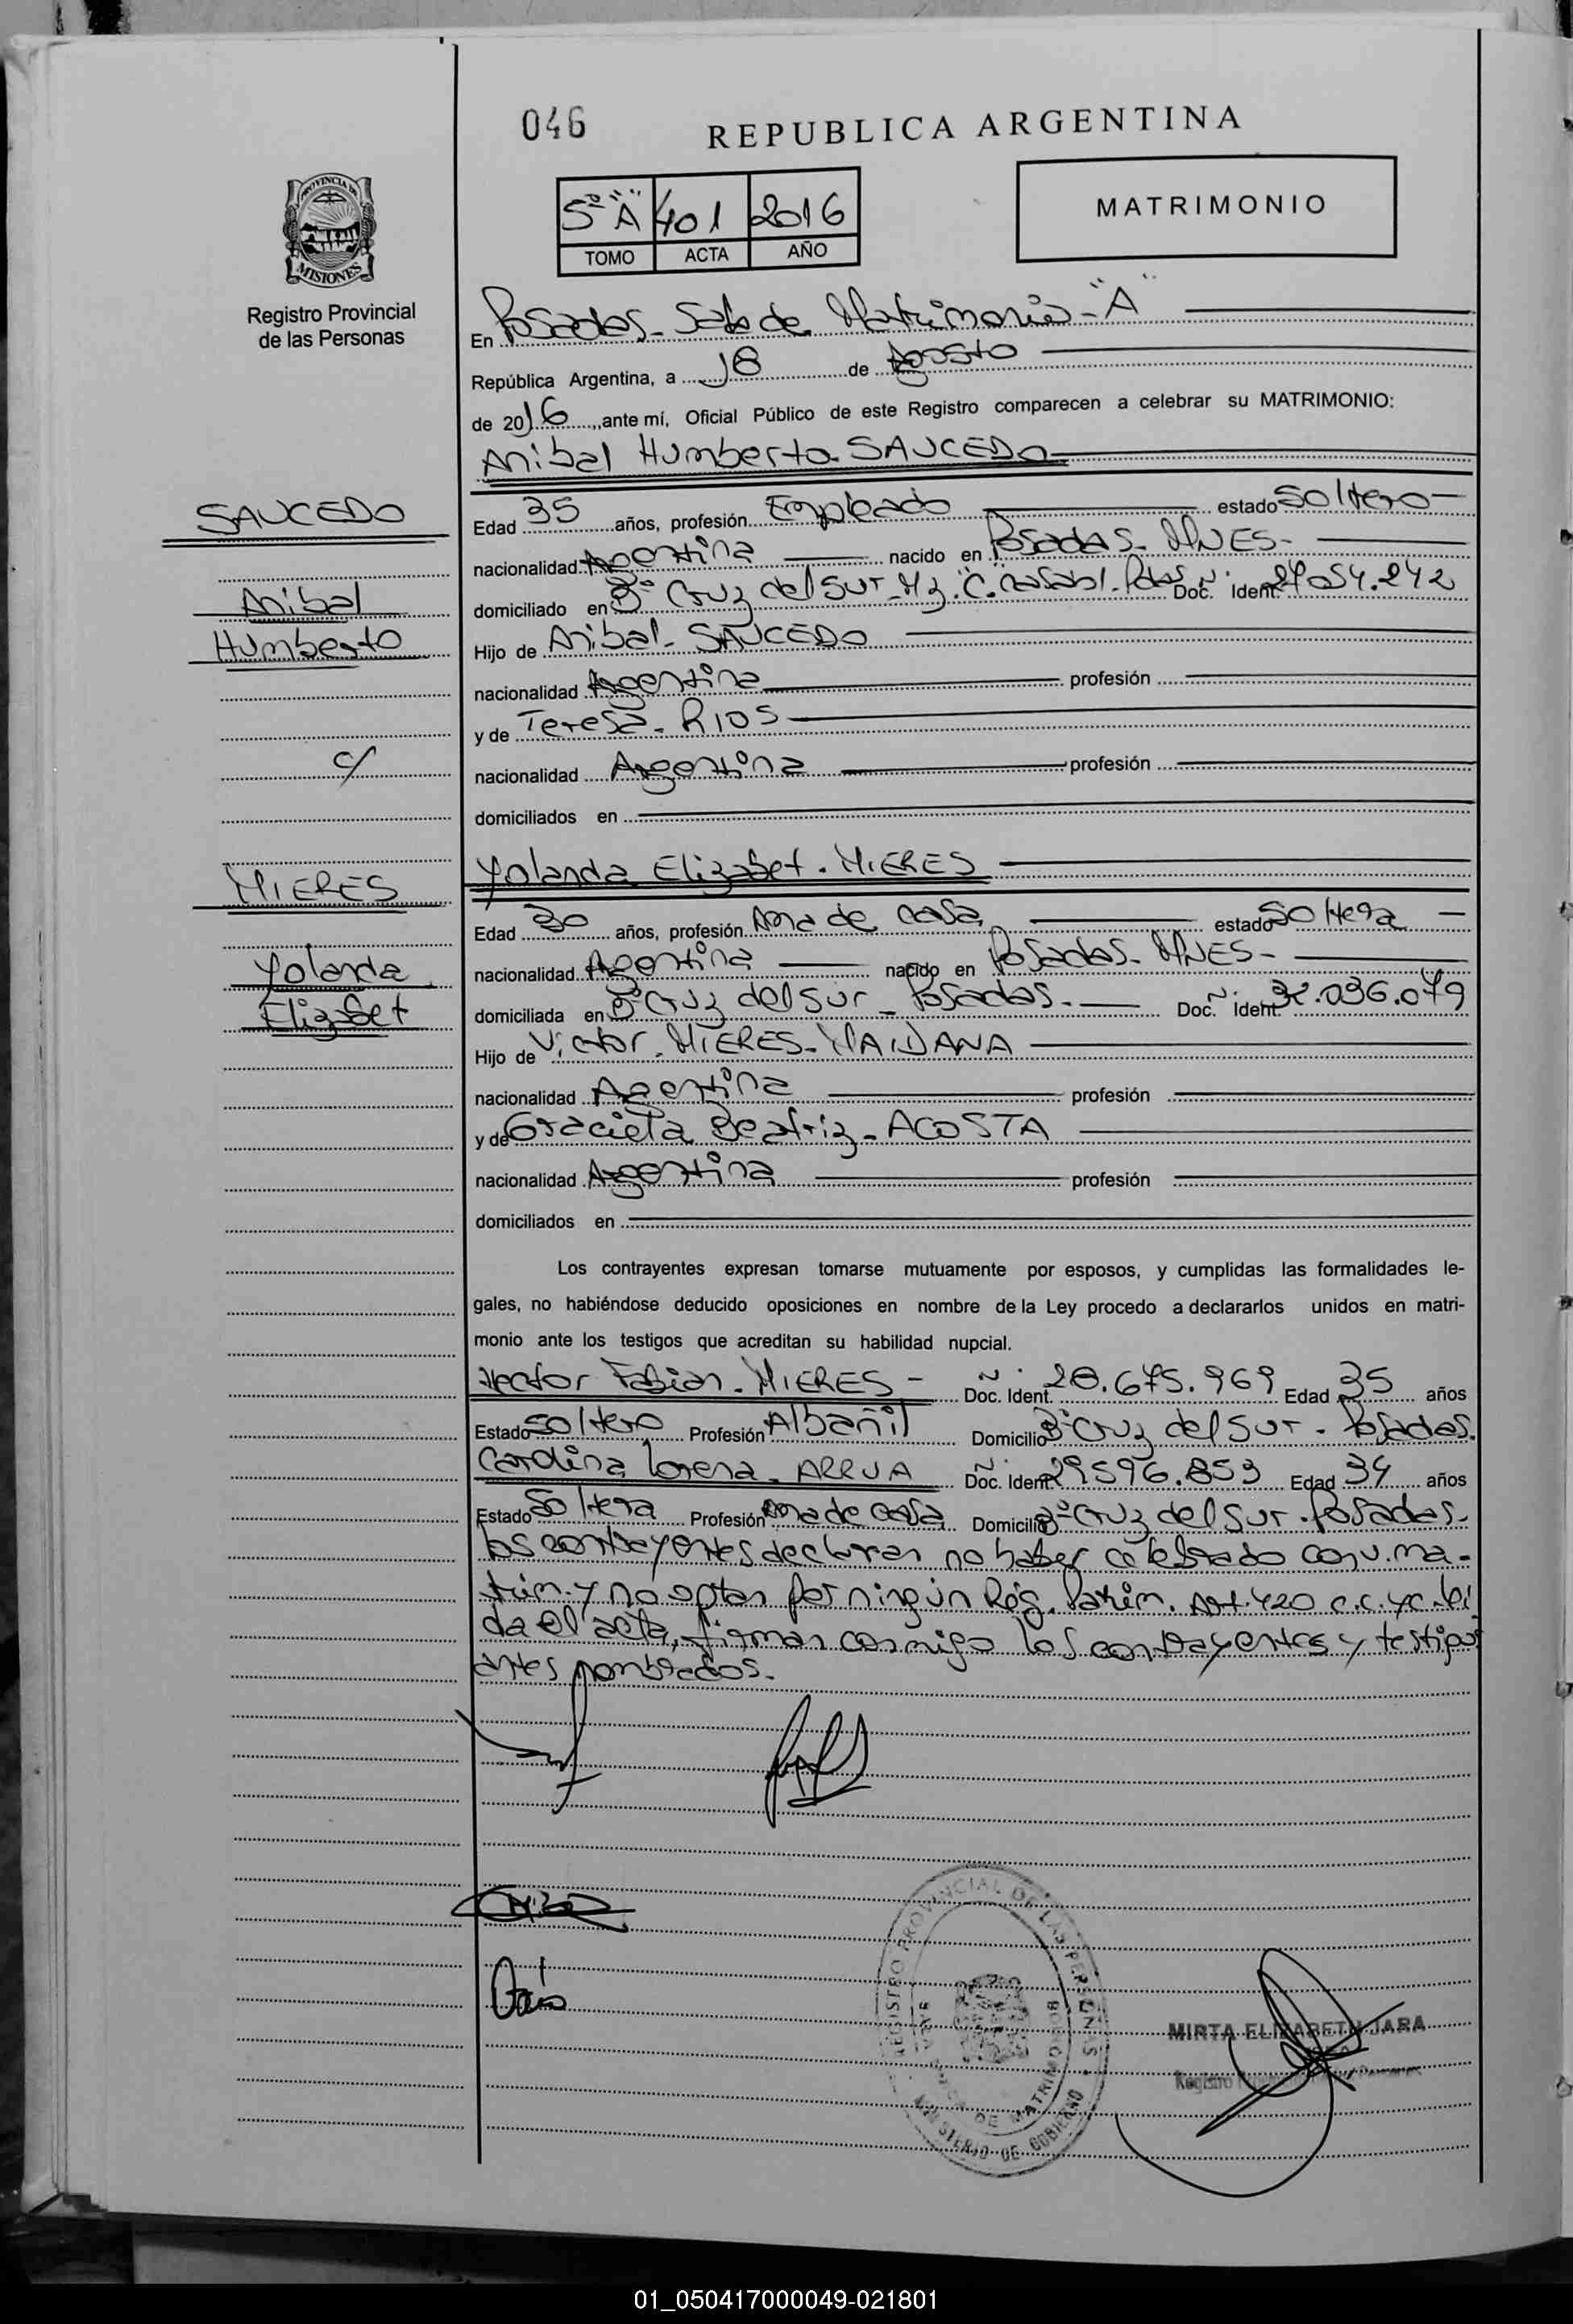 046
REPUBLICA ARGENTINA
5º "A" 401 2016
TOMO ACTA AÑO
MATRIMONIO
PROVINCIA DE
MISIONES
Registro Provincial
de las Personas
En Posadas - Sala de Matrimonio - "A"
República Argentina, a 18 de Agosto
de 2016, ante mí, Oficial Público de este Registro comparecen a celebrar su MATRIMONIO:
Anibal Humberto SAUCEDO
SAUCEDO
Anibal
Humberto
c/
MIERES
Yolanda
Elizabet
Edad 35 años, profesión Empleado estado soltero -
nacionalidad Argentina nacido en Posadas - MNES -
domiciliado en Bº Cruz del Sur - Mz. "C". casa 1. Pdas Doc. Ident. 29.054.242
Hijo de Anibal - SAUCEDO
nacionalidad Argentina profesión
y de Teresa - RIOS
nacionalidad Argentina profesión
domiciliados en
Yolanda Elizabet - MIERES
Edad 30 años, profesión Ama de casa estado soltera -
nacionalidad Argentina nacido en Posadas - MNES -
domiciliada en Bº Cruz del Sur - Posadas - Doc. Ident. 32.036.079
Hijo de Victor - MIERES - MAIDANA
nacionalidad Argentina profesión
y de Graciela Beatriz - ACOSTA
nacionalidad Argentina profesión
domiciliados en
Los contrayentes expresan tomarse mutuamente por esposos, y cumplidas las formalidades le-
gales, no habiéndose deducido oposiciones en nombre de la Ley procedo a declararlos unidos en matri-
monio ante los testigos que acreditan su habilidad nupcial.
Hector Fabian - MIERES - Doc. Ident. 28.675.969 Edad 35 años
Estado soltero Profesión Albañil Domicilio Bº Cruz del Sur - Posadas.
Carolina Lorena - ARRUA Doc. Ident. 29596.853 Edad 34 años
Estado soltera Profesión Ama de casa Domicilio Bº Cruz del Sur - Posadas -
los contrayentes declaran no haber celebrado conv. ma-
trim. y no optan por ningún Rég. Patrim. Art. 420 c.c. yc. leí
da el acta, firman conmigo los contrayentes y testigos
antes nombrados.
REGISTRO PROVINCIAL DE LAS PERSONAS
MINISTERIO DE GOBIERNO
MIRTA ELIZABETH JARA
Registro
01_050417000049-021801